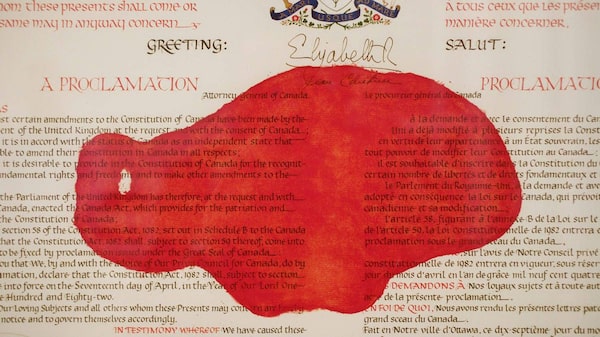 USQUE
hom these presents shall come or
same may in anyway concern:
GREETING:
Elizabeth R
A PROCLAMATION
Attorney General of Canada
AS
st certain amendments to the Constitution of Canada have been made by the
ent of the United Kingdom at the request and with the consent of Canada;
it is in accord with the status of Canada as an independent state that
ble to amend their constitution in Canada in all respects;
it is desirable to provide in the Constitution of Canada for the recognit
ndamental rights and freedoms and to make other amendments to the
the Parliament of the United Kingdom has therefore, at the request and with
Canada, enacted the Canada Act, which provides for the patriation and
the Constitution of Canada;
section 58 of the Constitution Act, 1982, set out in Schedule B to the Canada
that the Constitution Act, 1982 shall, subject to section 59 thereof, come into
to be fixed by proclamation issued under the Great Seal of Canada.
you that We, by and with the advice of Our Privy Council for Canada, do by
mation, declare that the Constitution Act, 1982 shall, subject to section
e into force on the Seventeenth day of April, in the Year of Our Lord One
Hundred and Eighty-two.
Our Loving Subjects and all others whom these Presents may concern are
notice and to govern themselves accordingly.
IN TESTIMONY WHEREOF We have caused these
à tous ceux que les présente
manière concerner,
SALUT:
PROCLAMATION
Le procureur général du Canada
à la demande et avec le consentement du Cana
Uni a déjà modifié à plusieurs reprises la Consti
en vertu de leur appartenance à un État souverain, les
tout pouvoir de modifier leur Constitution au Canada;
il est souhaitable d'inscrire dans la Constitution du
certain nombre de libertés et de droits fondamentaux et
le Parlement du Royaume-Uni, à la demande et avec
adopté en conséquence la Loi sur le Canada, qui prévoi
canadienne et sa modification
l'article 58, figurant à l'annexe B de la Loi sur le
la Loi constitutionnelle de 1982 entrera
proclamation sous le grand sceau du Canada.
sur l'avis de Notre Conseil privé
constitutionnelle de 1982 entrera en vigueur, sous réserve
jour du mois d'avril en l'an de grâce mil neuf cent quatre
DEMANDONS À Nos loyaux sujets et à toute aut
acte de la présente proclamation
EN FOI DE QUOI, Nous avons rendu les présentes lettres paten
grand sceau du Canada.
Fait en Notre ville d'Ottawa, ce dix-septième jour du mois